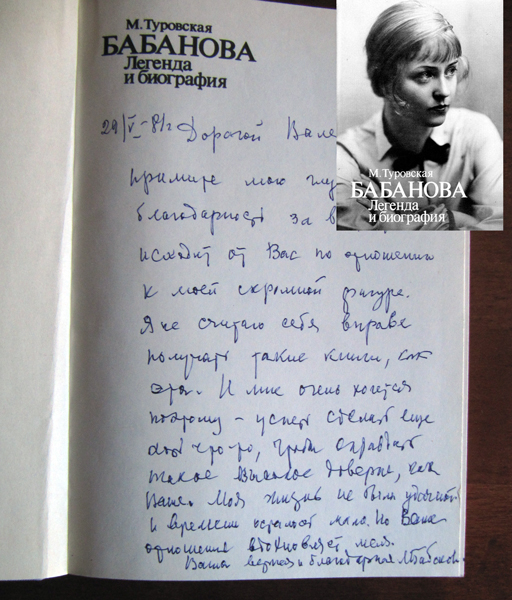 М. Туровская
БАБАНОВА
Легенда
и биография
29/V-81г Дорогой Вале
примите мою глу
благодарность за в
исходит от Вас по отношению
к моей скромной фигуре.
Я не считаю себя вправе
получать такие книги, как
эта. И мне очень хочется
поэтому - успеть сделать еще
хоть что-то, чтобы оправдать
такое высокое доверие, как
Ваше. Моя жизнь не была удачной
и времени осталось мало. Но Ваше
отношение вдохновляет меня.
Ваша верная и благодарная М. Бабанова
М. Туровская
БАБАНОВА
Легенда
и биография